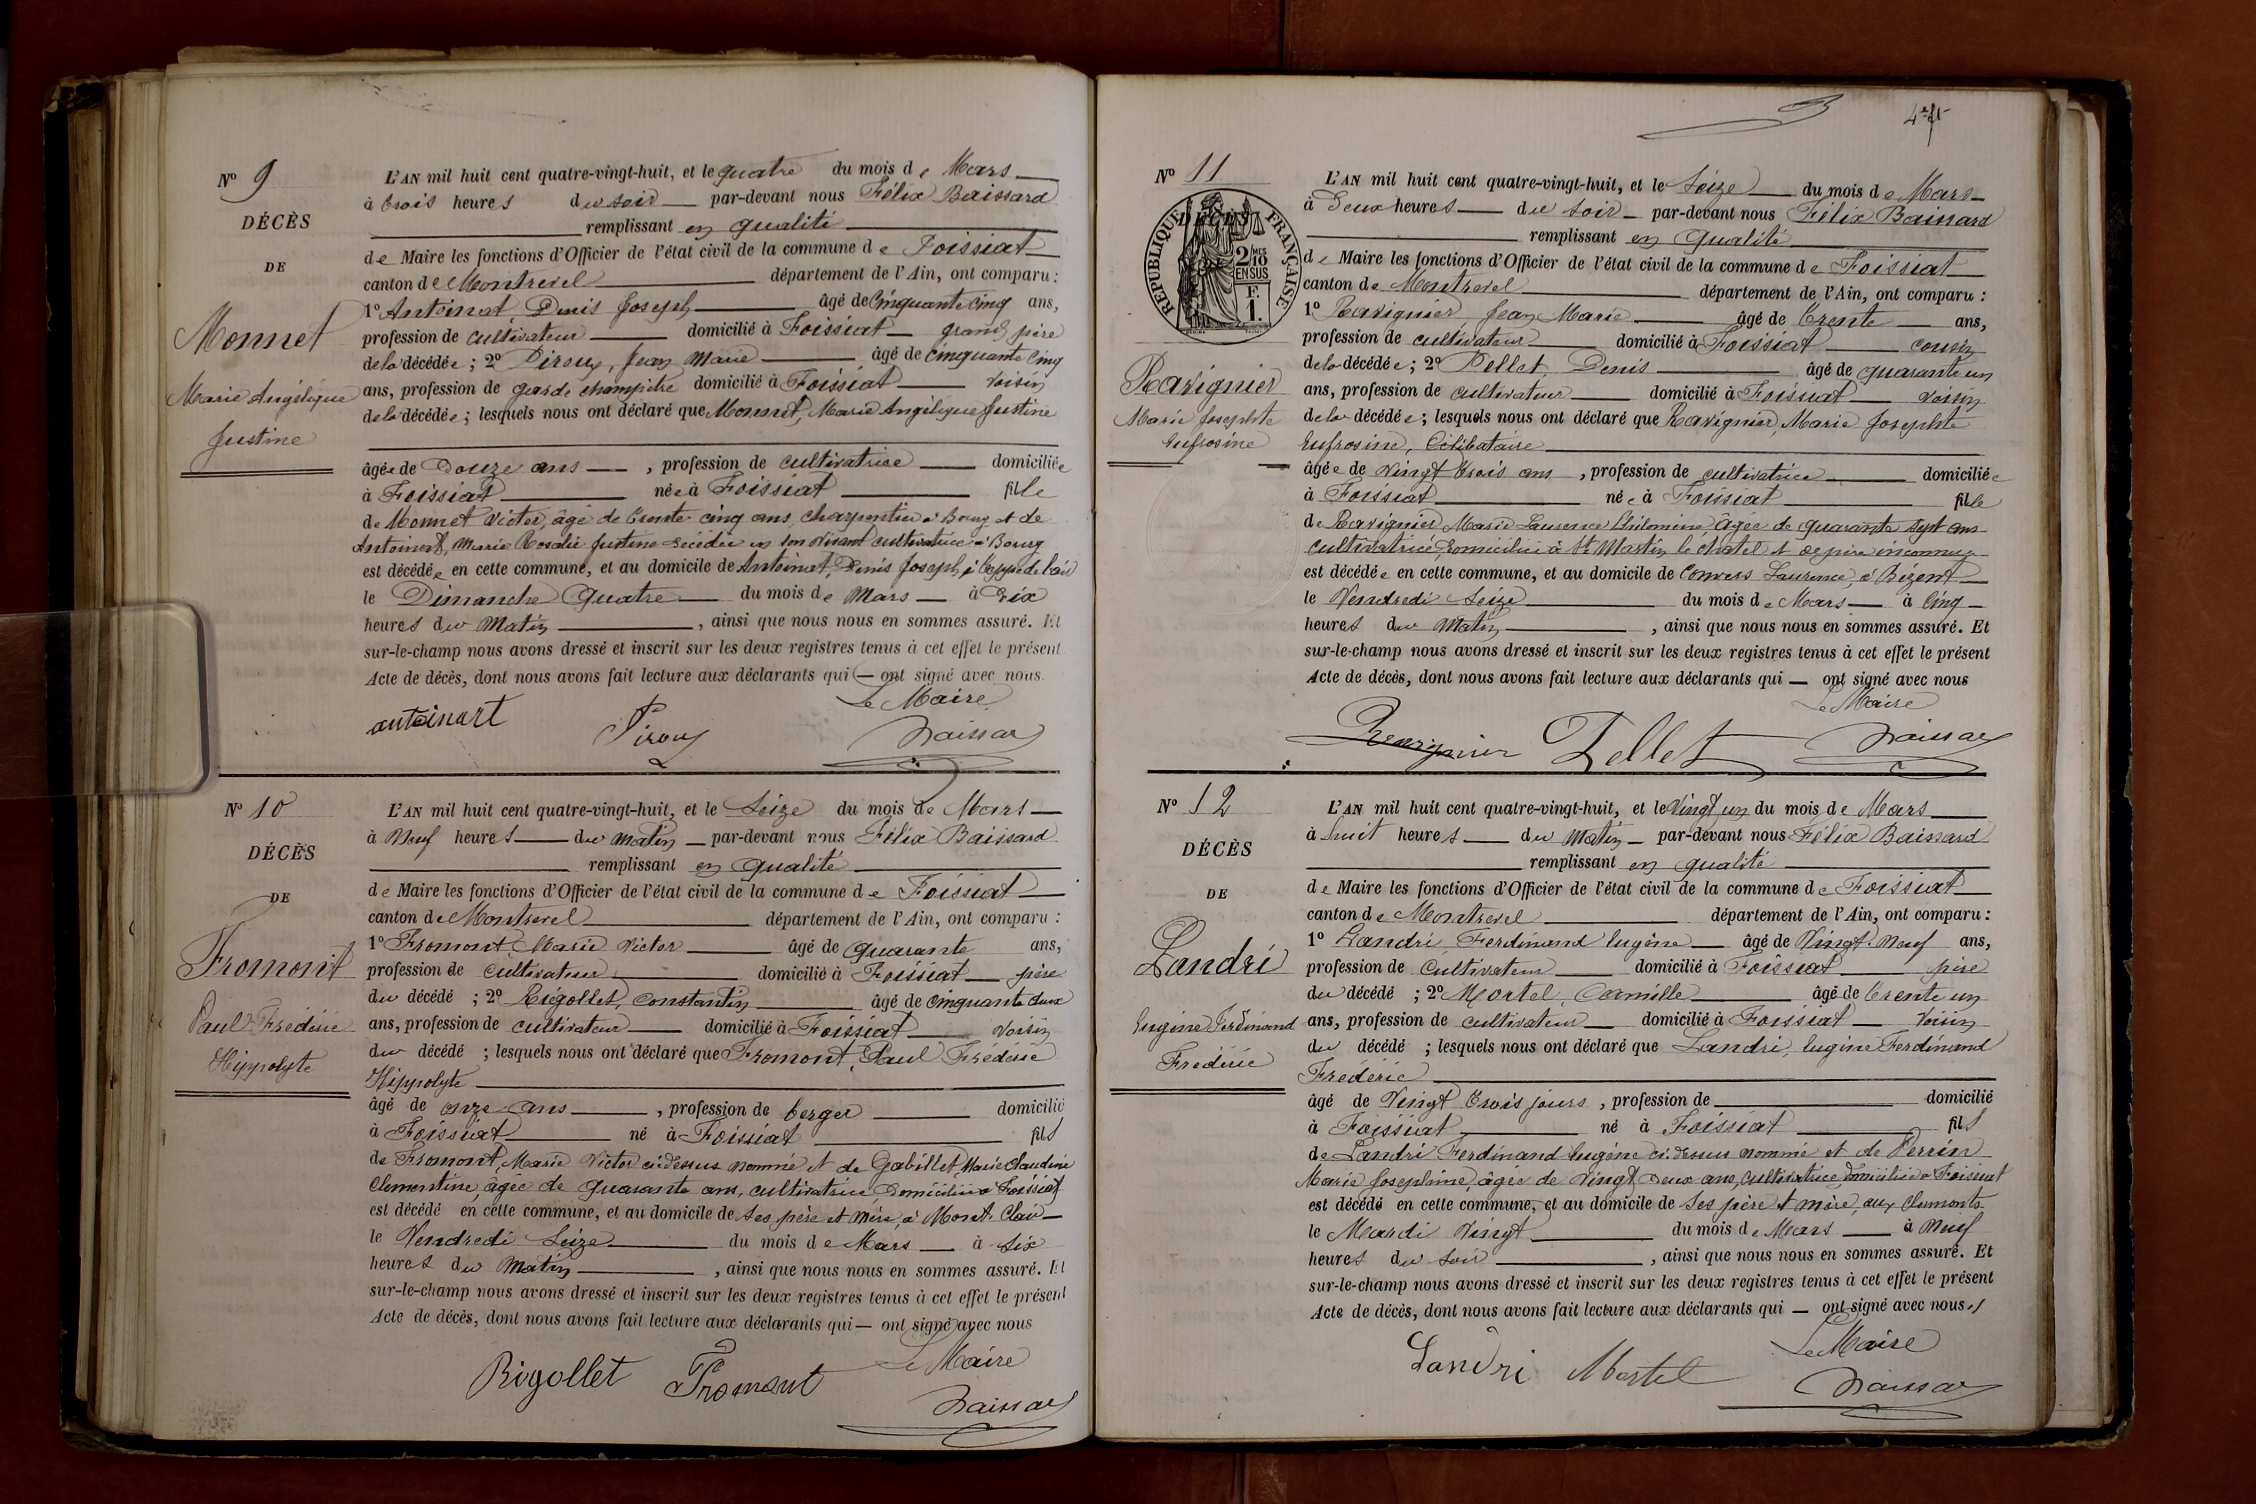 Nº 9
DÉCÈS
DE
Monnet
Marie Angélique
Justine
L'AN mil huit cent quatre-vingt-huit, et le quatre du mois de Mars
à trois heures du soir par-devant nous Félix Baissard
remplissant en qualité
de Maire les fonctions d'Officier de l'état civil de la commune de Foissiat
canton de Montrevel département de l'Ain, ont comparu :
1º Antoinat, Denis Joseph âgé de Cinquante Cinq ans,
profession de cultivateur domicilié à Foissiat grand père
de la décédée ; 2º Piroux, Jean Marie âgé de cinquante cinq
ans, profession de garde champêtre domicilié à Foissiat voisin
de la décédée ; lesquels nous ont déclaré que Monnet, Marie Angélique Justine
âgée de Douze ans , profession de cultivatrice domiciliée
à Foissiat née à Foissiat fille
de Monnet Victor, âgé de trente cinq ans, charpentier à Bourg et de
Antoinat, Marie Rosalie Justine décédée en son vivant cultivatrice à Bourg
est décédée en cette commune, et au domicile de Antoinat, Denis Joseph, à
le Dimanche Quatre du mois de Mars à Six
heures du Matin , ainsi que nous nous en sommes assuré. Et
sur-le-champ nous avons dressé et inscrit sur les deux registres tenus à cet effet le présent
Acte de décès, dont nous avons fait lecture aux déclarants qui — ont signé avec nous.
Le Maire
antoinart Piroux Baissard
Nº 10
DÉCÈS
DE
Fromont
Paul Frédéric
Hippolyte
L'AN mil huit cent quatre-vingt-huit, et le Seize du mois de Mars
à Neuf heures du matin par-devant nous Félix Baissard
remplissant en qualité
de Maire les fonctions d'Officier de l'état civil de la commune de Foissiat
canton de Montrevel département de l'Ain, ont comparu :
1º Fromont Marie Victor âgé de quarante ans,
profession de cultivateur domicilié à Foissiat père
du décédé ; 2º Rigollet, Constantin âgé de cinquante deux
ans, profession de cultivateur domicilié à Foissiat voisin
du décédé ; lesquels nous ont déclaré que Fromont, Paul Frédéric
Hippolyte
âgé de onze ans , profession de berger domicilié
à Foissiat né à Foissiat fils
de Fromont, Marie Victor ci-dessus nommé et de Gabillet, Marie Claudine
Clementine, âgée de quarante ans, cultivatrice, domiciliée à Foissiat
est décédé en cette commune, et au domicile de ses père et mère, à Moret-Clair
le Vendredi Seize du mois de Mars à Six
heures du Matin , ainsi que nous nous en sommes assuré. Et
sur-le-champ nous avons dressé et inscrit sur les deux registres tenus à cet effet le présent
Acte de décès, dont nous avons fait lecture aux déclarants qui — ont signé avec nous
Le Maire
Rigollet Fromont Baissard
Nº 11
DÉCÈS
RÉPUBLIQUE FRANÇAISE
2/10 EN SUS
F. 1.
Ravignier
Marie Josephte
Eufrosine
L'AN mil huit cent quatre-vingt-huit, et le Seize du mois de Mars
à Deux heures du soir par-devant nous Félix Baissard
remplissant en Qualité
de Maire les fonctions d'Officier de l'état civil de la commune de Foissiat
canton de Montrevel département de l'Ain, ont comparu :
1º Ravignier Jean Marie âgé de trente ans,
profession de cultivateur domicilié à Foissiat cousin
de la décédée ; 2º Pellet, Denis âgé de quarante un
ans, profession de cultivateur domicilié à Foissiat voisin
de la décédée ; lesquels nous ont déclaré que Ravignier, Marie Josephte
Eufrosine, Célibataire
âgée de vingt trois ans , profession de cultivatrice domiciliée
à Foissiat née à Foissiat fille
de Ravignier Marie Laurence Philomène âgée de quarante sept ans
cultivatrice, domiciliée à St Martin le châtel et de père inconnu
est décédée en cette commune, et au domicile de Convers Laurence, à Bézent
le Vendredi Seize du mois de Mars à Cinq
heures du Matin , ainsi que nous nous en sommes assuré. Et
sur-le-champ nous avons dressé et inscrit sur les deux registres tenus à cet effet le présent
Acte de décès, dont nous avons fait lecture aux déclarants qui — ont signé avec nous
Le Maire
Ravignier Pellet Baissard
Nº 12
DÉCÈS
DE
Landri
Eugène Ferdinand
Frédéric
L'AN mil huit cent quatre-vingt-huit, et le Vingt un du mois de Mars
à huit heures du Matin par-devant nous Félix Baissard
remplissant en qualité
de Maire les fonctions d'Officier de l'état civil de la commune de Foissiat
canton de Montrevel département de l'Ain, ont comparu :
1º Landri Ferdinand Eugène âgé de Vingt-Neuf ans,
profession de Cultivateur domicilié à Foissiat père
du décédé ; 2º Mortel, Camille âgé de trente un
ans, profession de cultivateur domicilié à Foissiat Voisin
du décédé ; lesquels nous ont déclaré que Landri, Eugène Ferdinand
Frédéric
âgé de Vingt trois jours , profession de domicilié
à Foissiat né à Foissiat fils
de Landri Ferdinand Eugène ci-dessus nommé et de Perrin
Marie Josephine, âgée de Vingt Deux ans, Cultivatrice, domiciliée à Foissiat
est décédé en cette commune, et au domicile de ses père et mère, aux Clemonts
le Mardi Vingt du mois de Mars à Neuf
heures du soir , ainsi que nous nous en sommes assuré. Et
sur-le-champ nous avons dressé et inscrit sur les deux registres tenus à cet effet le présent
Acte de décès, dont nous avons fait lecture aux déclarants qui — ont signé avec nous
Le Maire
Landri Mortel Baissard